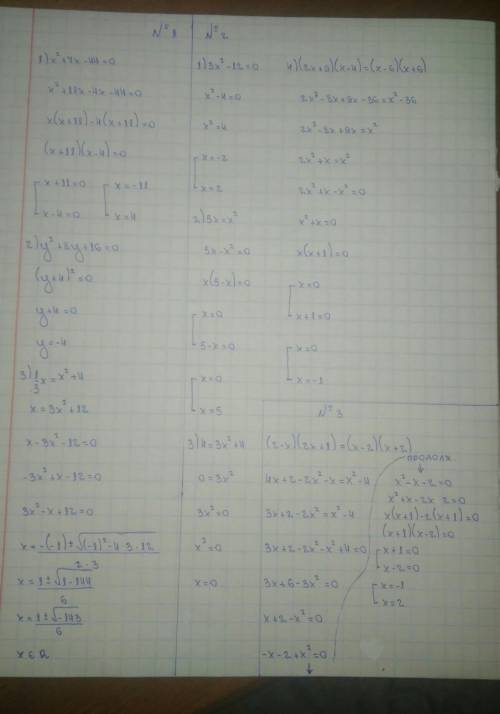 №1
1) x²+7x-44=0
x²+11x-4x-44=0
x(x+11)-4(x+11)=0
(x+11)(x-4)=0
[x+11=0 [x=-11
[x-4=0 [x=4
2) y²+8y+16=0
(y+4)²=0
y+4=0
y=-4
3) 1/3x=x²+4
x=3x²+12
x-3x²-12=0
-3x²+x-12=0
3x²-x+12=0
x=-(-1)±√(-1)²-4·3·12
2·3
x=1±√1-144
6
x=1±√-143
6
x∈R
№2
1) 3x²-12=0
x²-4=0
x²=4
[x=-2
[x=2
2) 5x=x²
5x-x²=0
x(5-x)=0
[x=0
[5-x=0
[x=0
[x=5
3) 4=3x²+4
0=3x²
3x²=0
x²=0
x=0
4) (2x+9)(x-4)=(x-6)(x+6)
2x²-8x+9x-36=x²-36
2x²-8x+9x=x²
2x²+x=x²
2x²+x-x²=0
x²+x=0
x(x+1)=0
[x=0
[x+1=0
[x=0
[x=-1
№3
(2-x)(2x+1)=(x-2)(x+2)
4x+2-2x²-x=x²-4
3x+2-2x²=x²-4
3x+2-2x²-x²+4=0
3x+6-3x²=0
x+2-x²=0
-x-2+x²=0
↓
продолж.
↓
x²-x-2=0
x²+x-2x-2=0
x(x+1)-2(x+1)=0
(x+1)(x-2)=0
[x+1=0
[x-2=0
[x=-1
[x=2